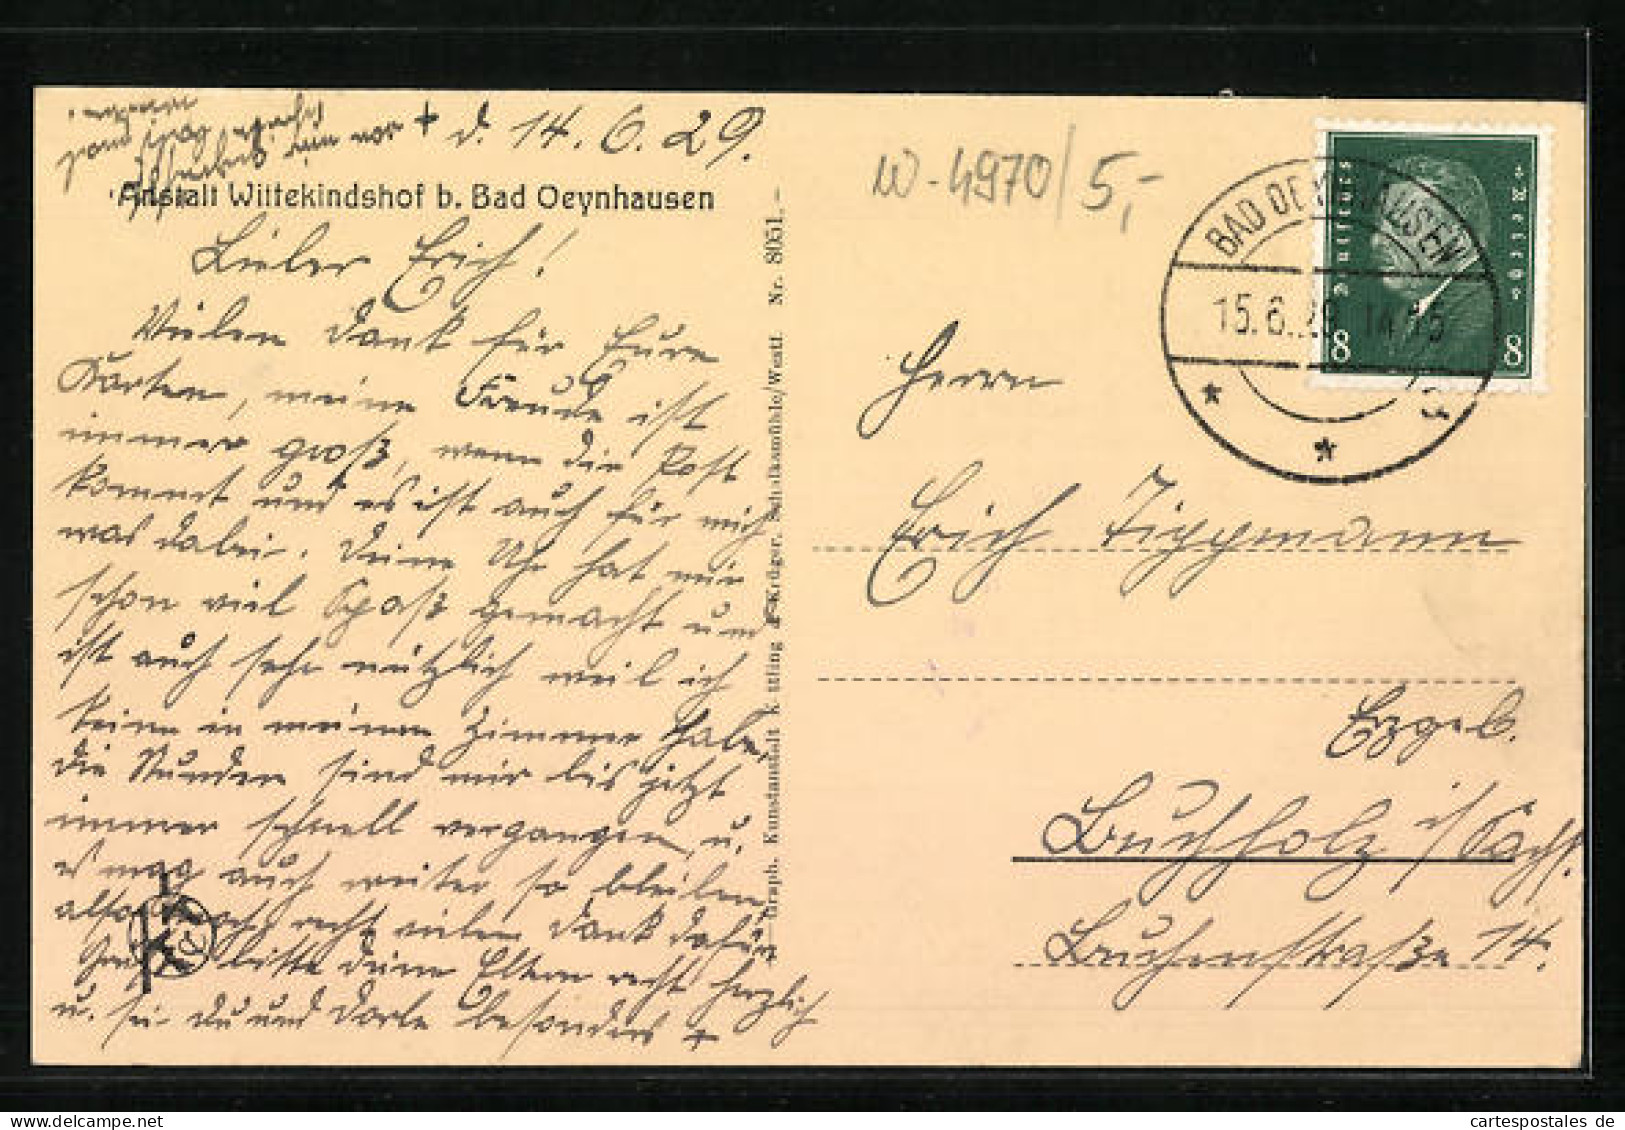 + d. 14. 6. 29.
Anstalt Wittekindshof b. Bad Oeynhausen
Lieber Erich!
Vielen Dank für Eure
Karten, meine Freude ist
immer groß, wenn die Post
kommt und es ist auch für mich
was dabei. Deine Uhr hat mir
schon viel Spaß gemacht und
ist auch sehr nützlich weil ich
keine in meinem Zimmer habe,
die Stunden sind mir bis jetzt
immer schnell vergangen, u.
es mag auch weiter so bleiben,
also noch recht vielen Dank dafür
Grüße bitte deine Eltern recht herzlich
u. sei Du und Dorle besonders +
vor mir
Graph. Kunstanstalt Kettling & Krüger, Schalksmühle/Westf. Nr. 8051.
W-4970/5,-
BAD OEYNHAUSEN
15.6.29. 14-15
Deutsches Reich
8 8
Herrn
Erich Tippmann
Erzgeb.
Buchholz i/Sachs.
Buchenstraße 14.
cartespostales de